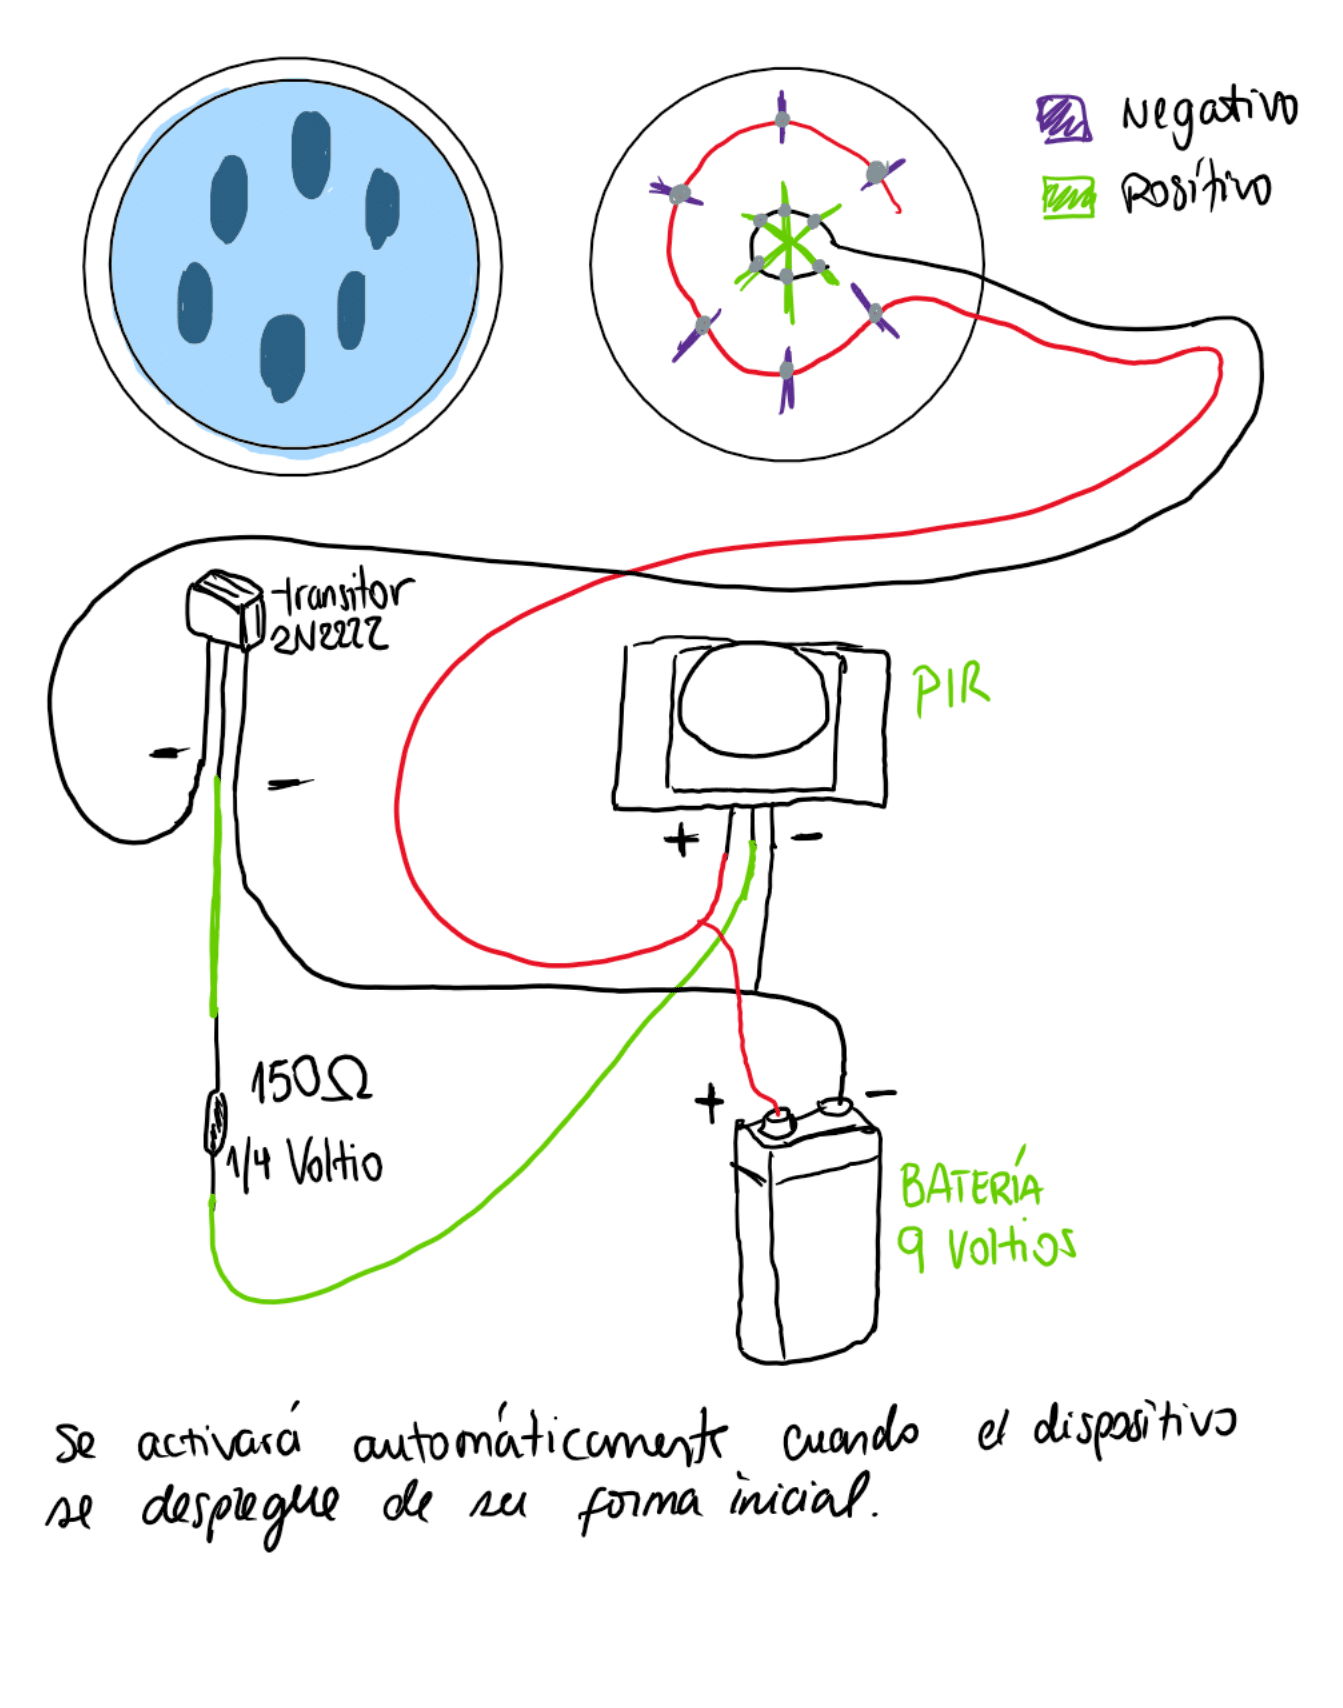 Negativo
Positivo
transitor
2N2222
-
-
PIR
+ -
150Ω
1/4 Voltio
+ -
BATERÍA
9 Voltios
Se activará automáticamente cuando el dispositivo
se despliegue de su forma inicial.